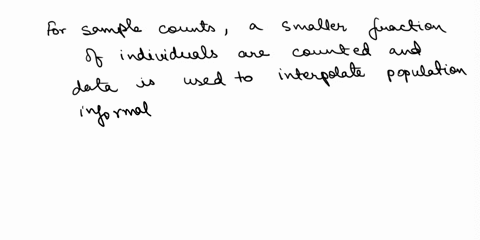 For sample counts, a smaller fraction
of individuals are counted and
data is used to interpolate population
informal